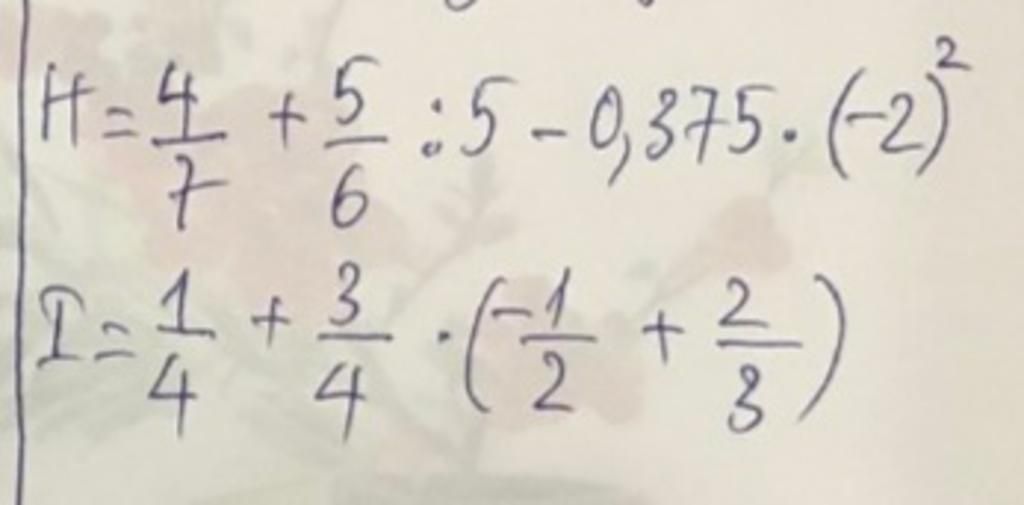 H = 4/7 + 5/6 : 5 - 0,375 . (-2)²
I = 1/4 + 3/4 . (-1/2 + 2/3)